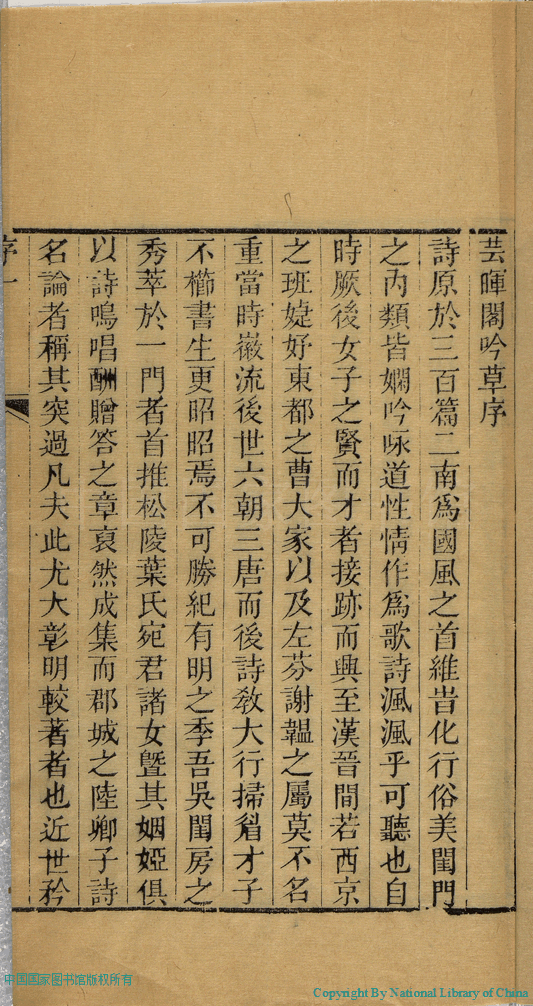 芸暉閣吟草序
詩原於三百篇二南爲國風之首維昔化行俗美閨門
之內類皆嫻吟咏道性情作爲歌詩渢渢乎可聽也自
時厥後女子之賢而才者接跡而興至漢晉間若西京
之班婕妤東都之曹大家以及左芬謝韞之屬莫不名
重當時徽流後世六朝三唐而後詩敎大行掃眉才子
不櫛書生更昭昭焉不可勝紀有明之季吾吳閨房之
秀萃於一門者首推松陵葉氏宛君諸女曁其姻婭俱
以詩鳴唱酬贈答之章裒然成集而郡城之陸卿子詩
名論者稱其突過凡夫此尤大彰明較著者也近世矜
序一
中国国家图书馆版权所有
Copyright By National Library of China